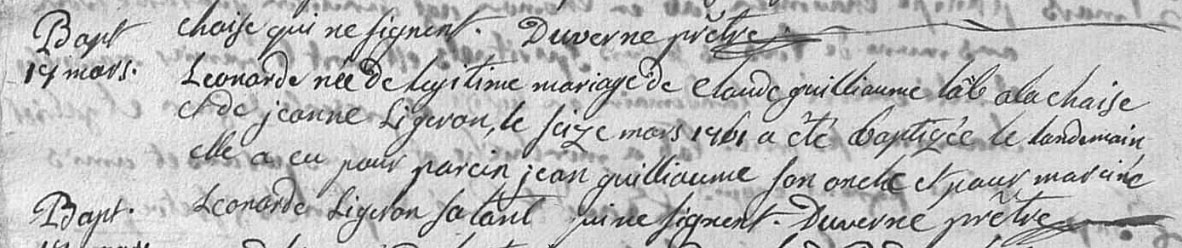 chaise qui ne signent. Duverne prêtre
Bapt
17 mars.
Leonarde née de legitime mariage de Claude guilliaume lab a la chaise
et de jeanne Ligeron, le seize mars 1761 a été baptizée le landemain
elle a eu pour parein jean guilliaume son oncle et pour mareine
Bapt.
Leonarde Ligeron sa tante qui ne signent. Duverne prêtre